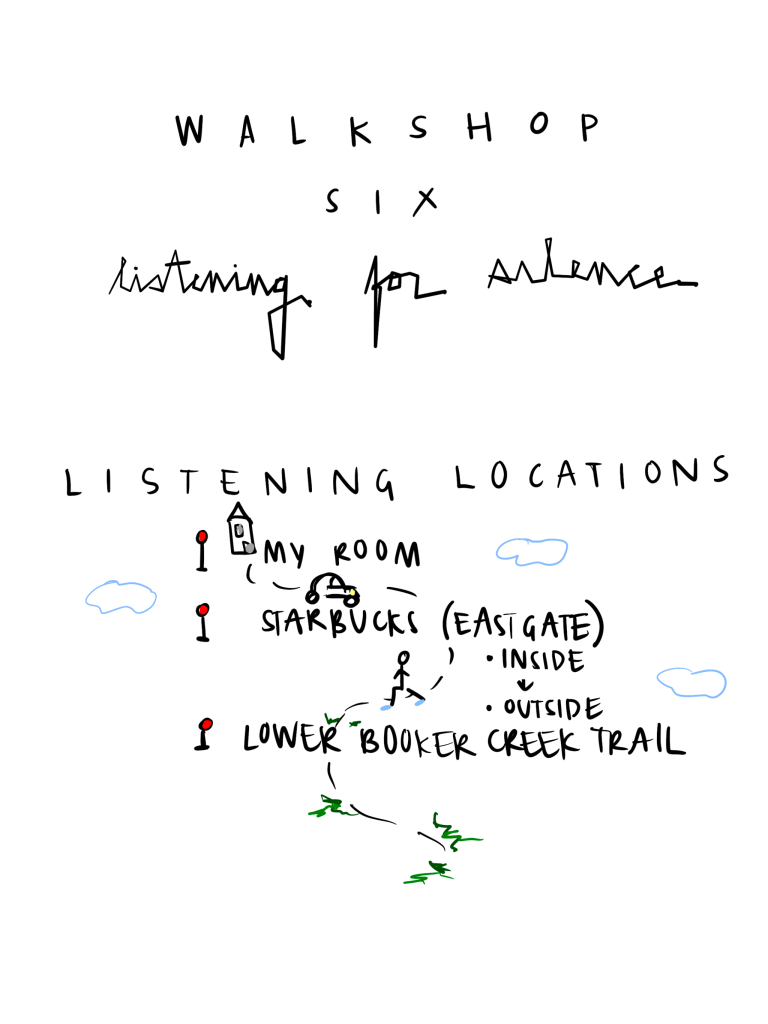 WALKSHOP
SIX
listening for silence
LISTENING LOCATIONS
MY ROOM
STARBUCKS (EASTGATE)
• INSIDE
↓
• OUTSIDE
LOWER BOOKER CREEK TRAIL